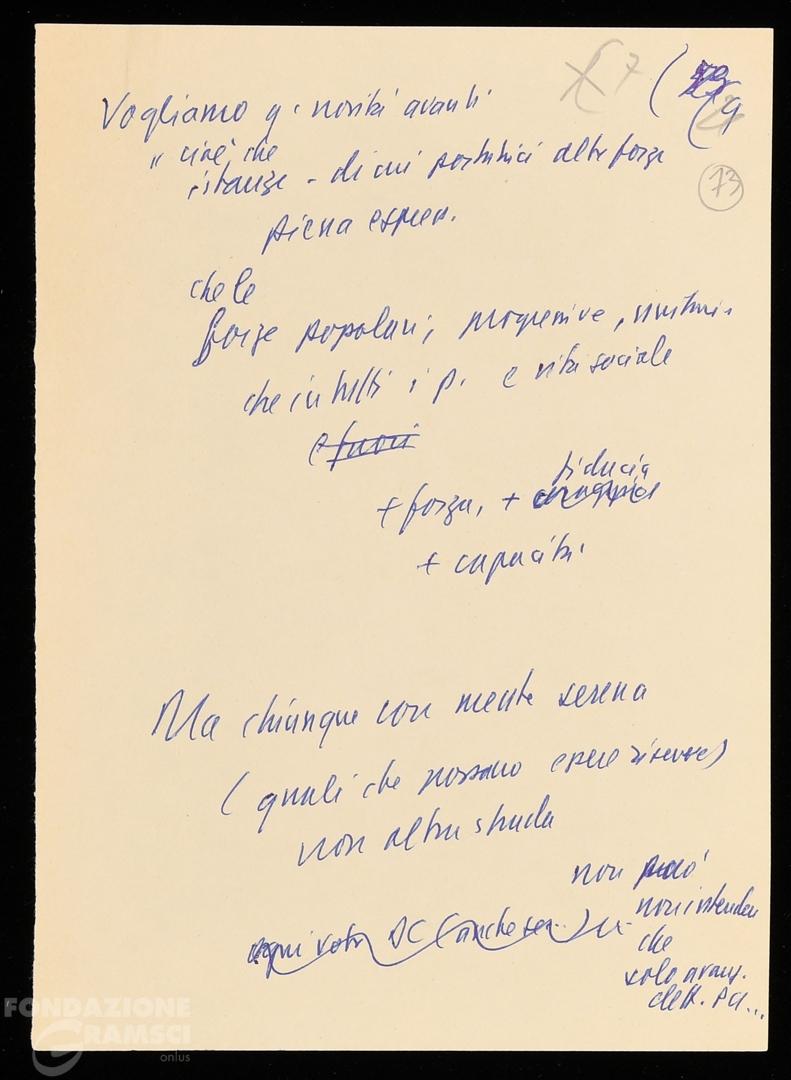 7 ( 9
73
Vogliamo q. novità avanti
" cioè, che
istanze - di cui portatrici altre forze
piena espress.
che le
forze popolari, progressive,
che in tutti i p. e vita sociale
e fuori
fiducia
+ forza, +
+ capacità
Ma chiunque con mente serena
(quali che possano essere riserve)
non altra strada
non può
ogni voto DC (anche se..)
non intendere
che
solo avanz.
dell. PCI...
FONDAZIONE
GRAMSCI
onlus